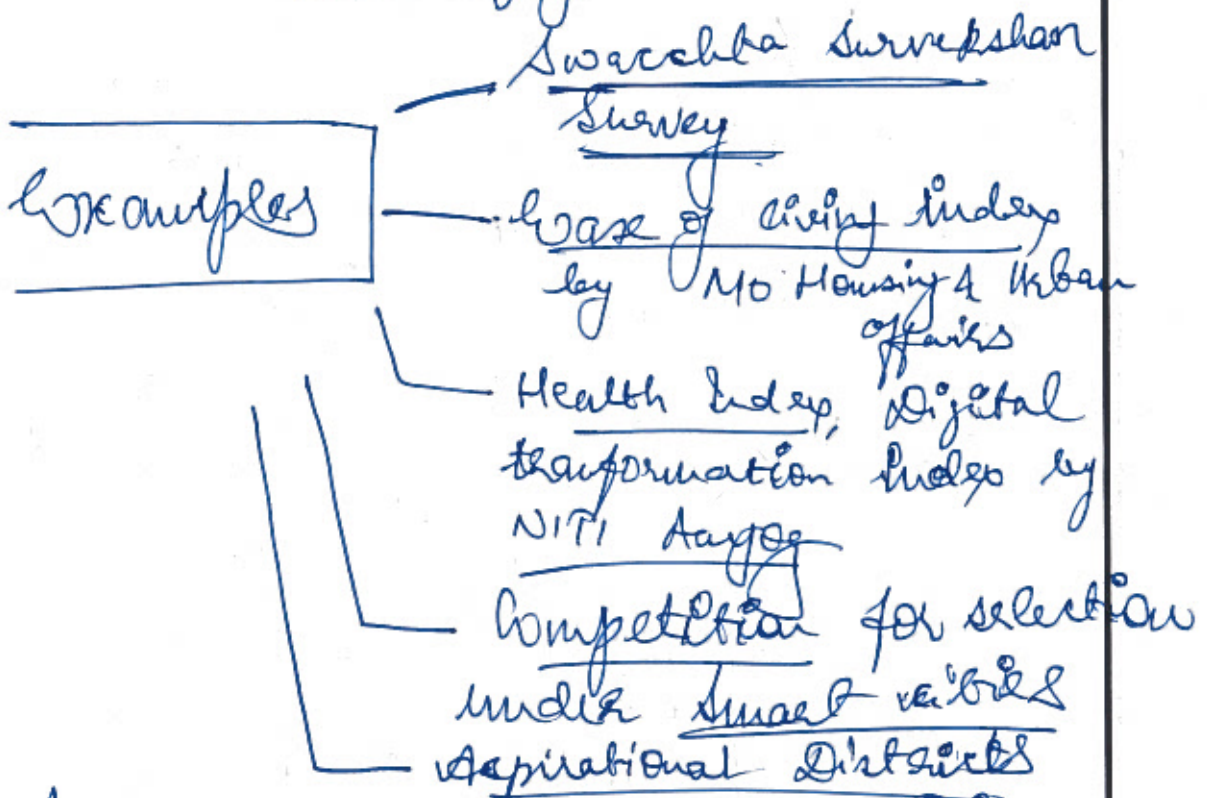 Swacchta Survekshan
Survey
Examples
Ease of living Index
by Mo Housing & Urban
Affairs
Health Index, Digital
transformation Index by
NITI Aayog
Competition for selection
under Smart cities
Aspirational Districts